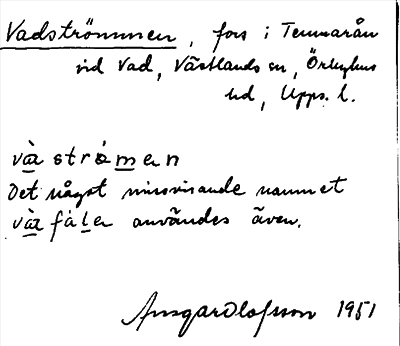 Vadströmmen, fors i Temnarån
vid Vad, Västlands sn, Örbyhus
hd, Upps. l.
và̱a̱ strȧm̱en
Det något missvisande namnet
và̱a̱ fàḻer användes även.
Ansgar Olofsson 1951